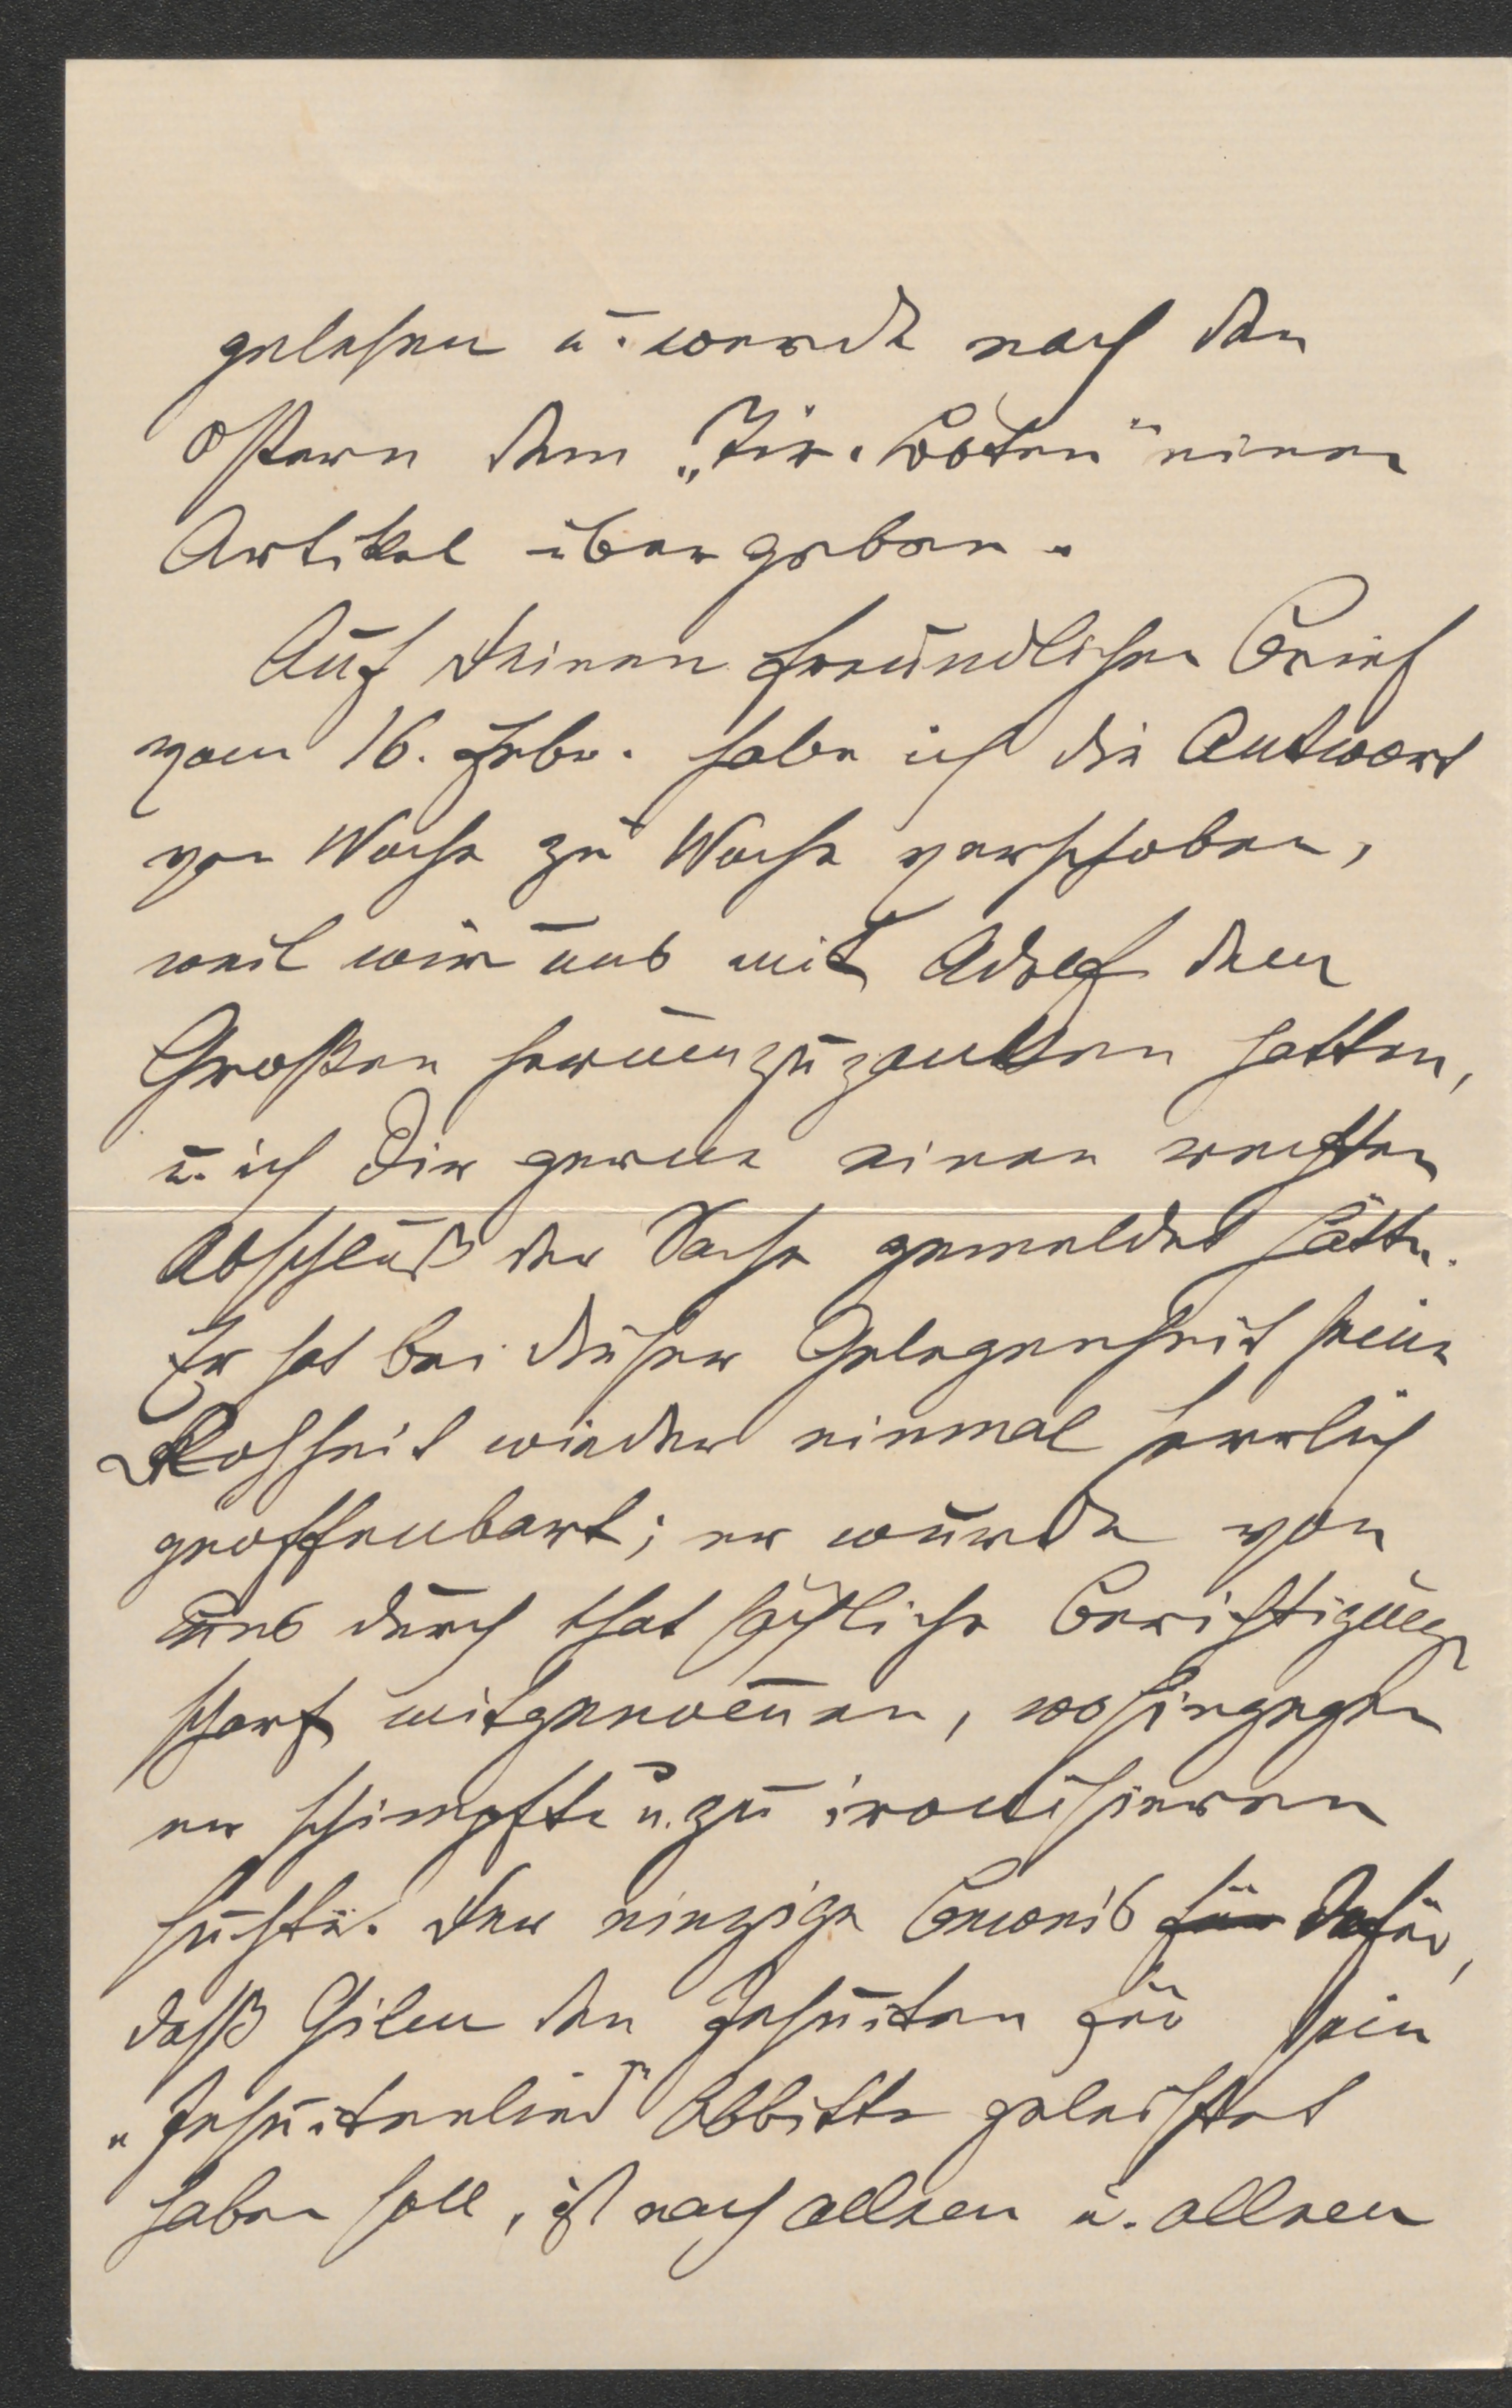 gelesen u. werde nach den
Ostern dem „Tir. Boten" einen
Artikel übergeben.
Auf Deinen freundlichen Brief
vom 16. Febr. habe ich die Antwort
von Woche zu Woche verschoben,
weil wir uns mit Adolf dem
Großen herumzuzanken hatten,
u. ich Dir gerne einen rechten
Abschluß der Sache gemeldet hätte.
Er hat bei dieser Gelegenheit seine
Rohheit wieder einmal herrlich
geoffenbart; er wurde von
uns durch thatsächliche Berichtigung
scharf mitgenommen, wohingegen
er schimpfte u. zu ironisieren
suchte. Der einzige Beweis für dafür,
daß Gilm den Jesuiten für sein
„Jesuitenlied" Abbitte geleistet
haben soll, ist nach allem u. allem